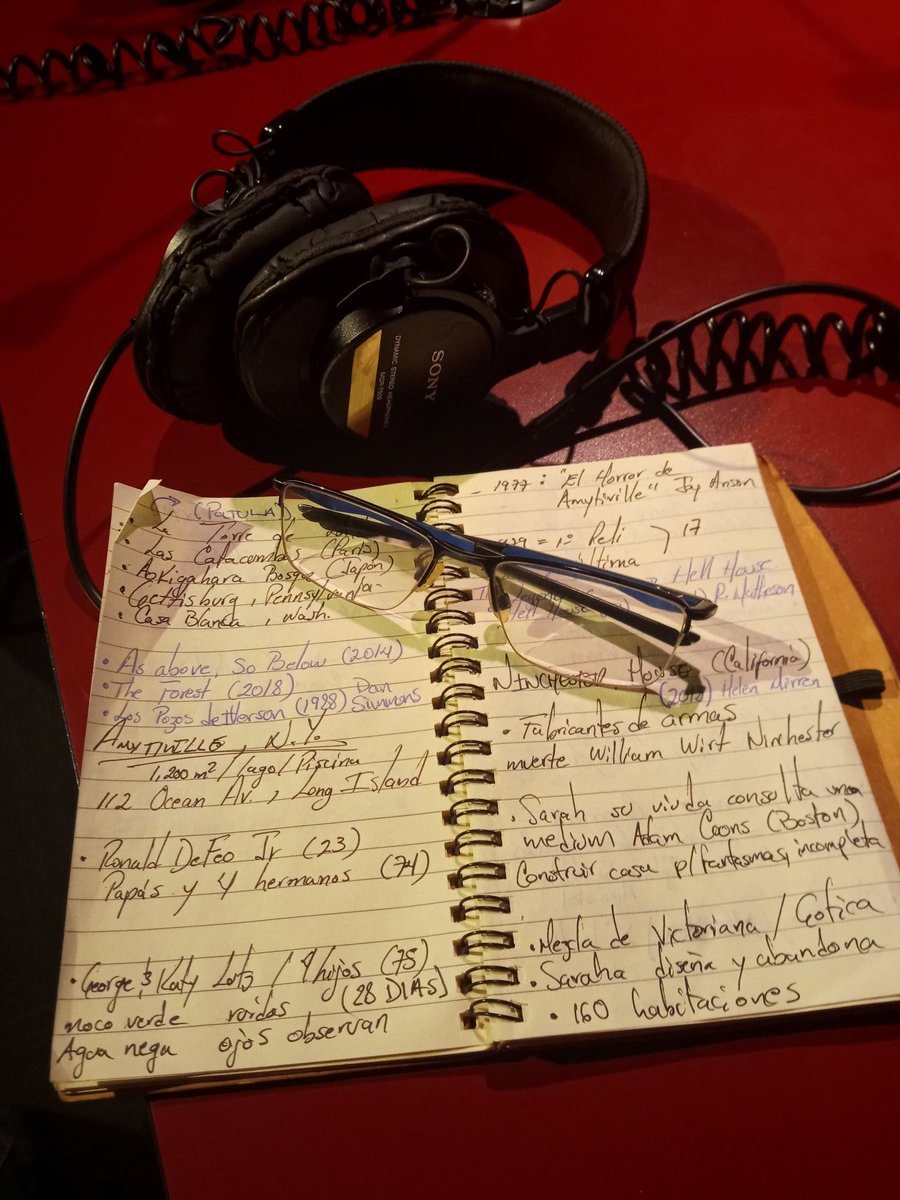 SONY
DYNAMIC STEREO HEADPHONES
MDR-7506
(PATULA),
• Torre de
• Las Catacombas (París)
• Aokigahara Bosque (Japón)
• Gettysburg, Pennsylvania
• Casa Blanca, Wash.
• As above, So Below (2014)
• The forest (2018)
• Los Pozos de (1988) Dan Simmons
AMYTIVILLE, N.Y.
1,200 m² / Lago / Piscina
112 Ocean Av., Long Island
• Ronald DeFeo Jr (23)
Papás y 4 hermanos (74)
• George & Katy Lutz / 4 hijos (75)
(28 DIAS)
moco verde roidas
Agua negra ojos observan
- 1977: "El Horror de
Amytiville" Jay Anson
= 1º Peli } 17
última
Hell House
Hell House R. Matheson
House (California)
(2018) Helen Mirren
• Fabricantes de armas
muerte William Wirt Ninchester
• Sarah su viuda consulta una
medium Adam Coons (Boston)
Construir casa p/fantasmas, incompleta
• Mezcla de Victoriana / Gotica
• Saraha diseña y abandona
• 160 habitaciones